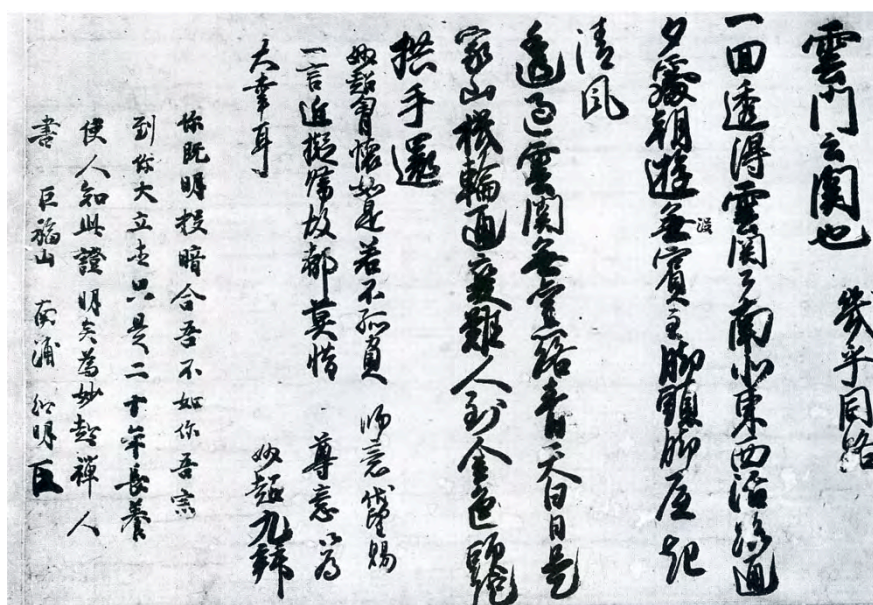 雲門云関也 幾乎同路
一回透得雲関了南北東西活路通
夕處朝遊無賓主脚頭脚底起
没
清風
透過雲関無舊路青天白日是
家山機輪通變難人到金色頭陀
拱手還
妙超胷懷如是若不孤負 師意伏望賜
一言近擬帰故都莫惜 尊意以為
大幸耳 妙超九拜
你既明投暗合吾不如你吾宗
到你大立去只是二十年長養
使人知此證明矣為妙超禪人
書 巨福山 南浦紹明